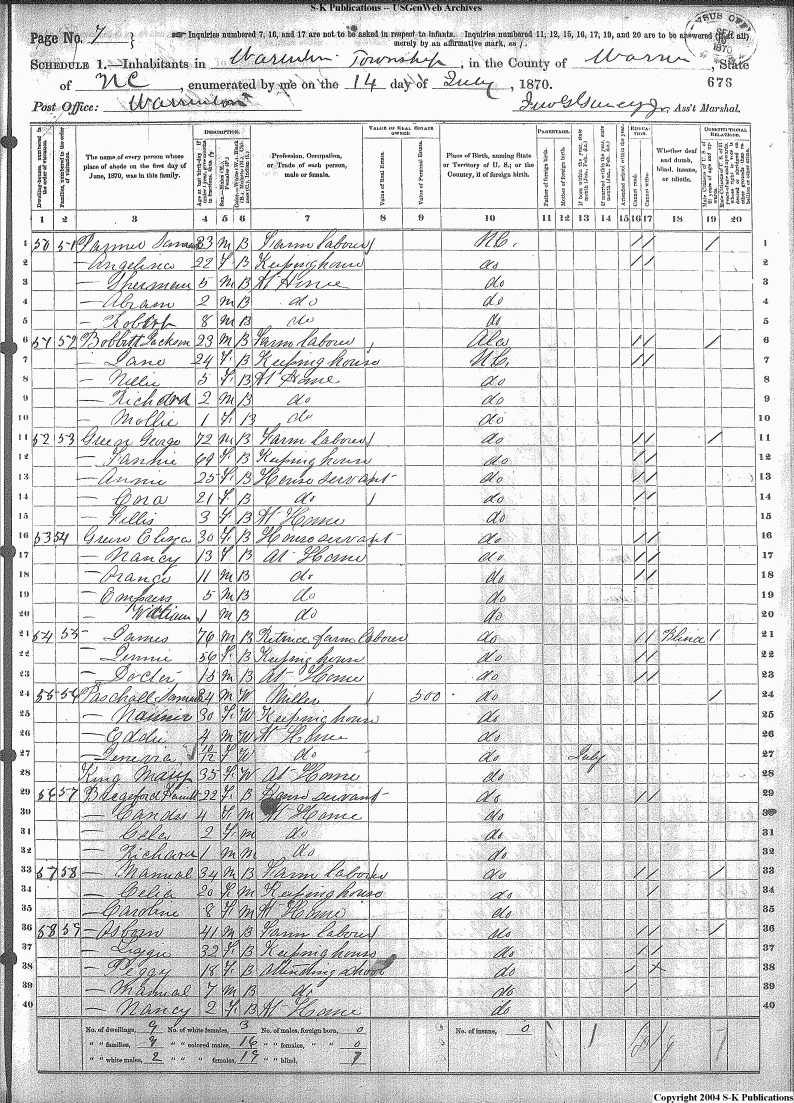 S-K Publications -- USGenWeb Archives
Page No. 7
Inquiries numbered 7, 16, and 17 are not to be asked in respect to infants. Inquiries numbered 11, 12, 15, 16, 17, 19, and 20 are to be answered (if at all)
merely by an affirmative mark, as /.
SCHEDULE 1.—Inhabitants in Warrenton Township, in the County of Warren, State
of NC, enumerated by me on the 14 day of July, 1870.
678
Post Office: Warrenton
Ass't Marshal.
DESCRIPTION.
VALUE OF REAL ESTATE OWNED.
PARENTAGE.
EDUCATION.
CONSTITUTIONAL RELATIONS.
Dwelling-houses, numbered in the order of visitation.
Families, numbered in the order of visitation.
The name of every person whose place of abode on the first day of June, 1870, was in this family.
Profession, Occupation, or Trade of each person, male or female.
Value of Real Estate.
Value of Personal Estate.
Place of Birth, naming State or Territory of U. S.; or the Country, if of foreign birth.
Father of foreign birth.
Mother of foreign birth.
Attended school within the year.
Cannot read.
Cannot write.
Whether deaf and dumb, blind, insane, or idiotic.
1 2 3 4 5 6 7 8 9 10 11 12 13 14 15 16 17 18 19 20
1 50 51 M B Farm laborer / N.C. / / / 1
2 — Angelina 22 F B Keeping house do / / 2
3 — Sherman 5 M B At Home do 3
4 — Abram 2 M B do do 4
5 — Robert 8 M B do do 5
6 51 52 Bobbitt Jackson 23 M B Farm laborer / Ala / / / 6
7 — Jane 24 F B Keeping house N.C. / / 7
8 — Nellie 5 F B At Home do 8
9 — Richard 2 M B do do 9
10 — Mollie 1 F B do do 10
11 52 53 Green George 72 M B Farm laborer / do / / / 11
12 — Fannie 69 F B Keeping house do / / 12
13 — Annie 25 F B House servant do / / 13
14 — Cora 21 F B do / do / / 14
15 — Fillis 3 F B At Home do 15
16 53 54 Green Eliza 30 F B House servant do / / 16
17 — Nancy 13 F B At Home do / / 17
18 — Orange 11 M B do do / / 18
19 — 5 M B do do 19
20 — William 1 M B do do 20
21 54 55 — James 76 M B farm laborer do / / Blind / 21
22 — Jennie 56 F B Keeping house do / / 22
23 — Docter 15 M B At Home do / / 23
24 55 56 Paschall M W Miller / 500 do / 24
25 — 30 F W Keeping house do 25
26 — Eddie 4 M W At Home do 26
27 — 10/12 F W do do July 27
28 King Mary 35 F W At Home do 28
29 56 57 22 F B House servant do / / 29
30 — Candis 4 F M At Home do 30
31 — 2 F M do do 31
32 — Richard 1 M M do do 32
33 57 58 — Manual 34 M B Farm laborer do / / / 33
34 — Celia 20 F M Keeping house do / 34
35 — Caroline 8 F M At Home do 35
36 58 59 — Osborn 41 M B Farm laborer / do / / / 36
37 — 32 F B Keeping house do / / 37
38 — Peggy 18 F B attending school do / 38
39 — Manual 7 M B do do / / 39
40 — Nancy 2 F B At Home do 40
No. of dwellings, 9 No. of white females, 3 No. of males, foreign born, 0 No. of insane, 0
" " families, 9 " " colored males, 16 " " females, " " 0
" " white males, 2 " " " females, 19 " " blind, 1
Copyright 2004 S-K Publications